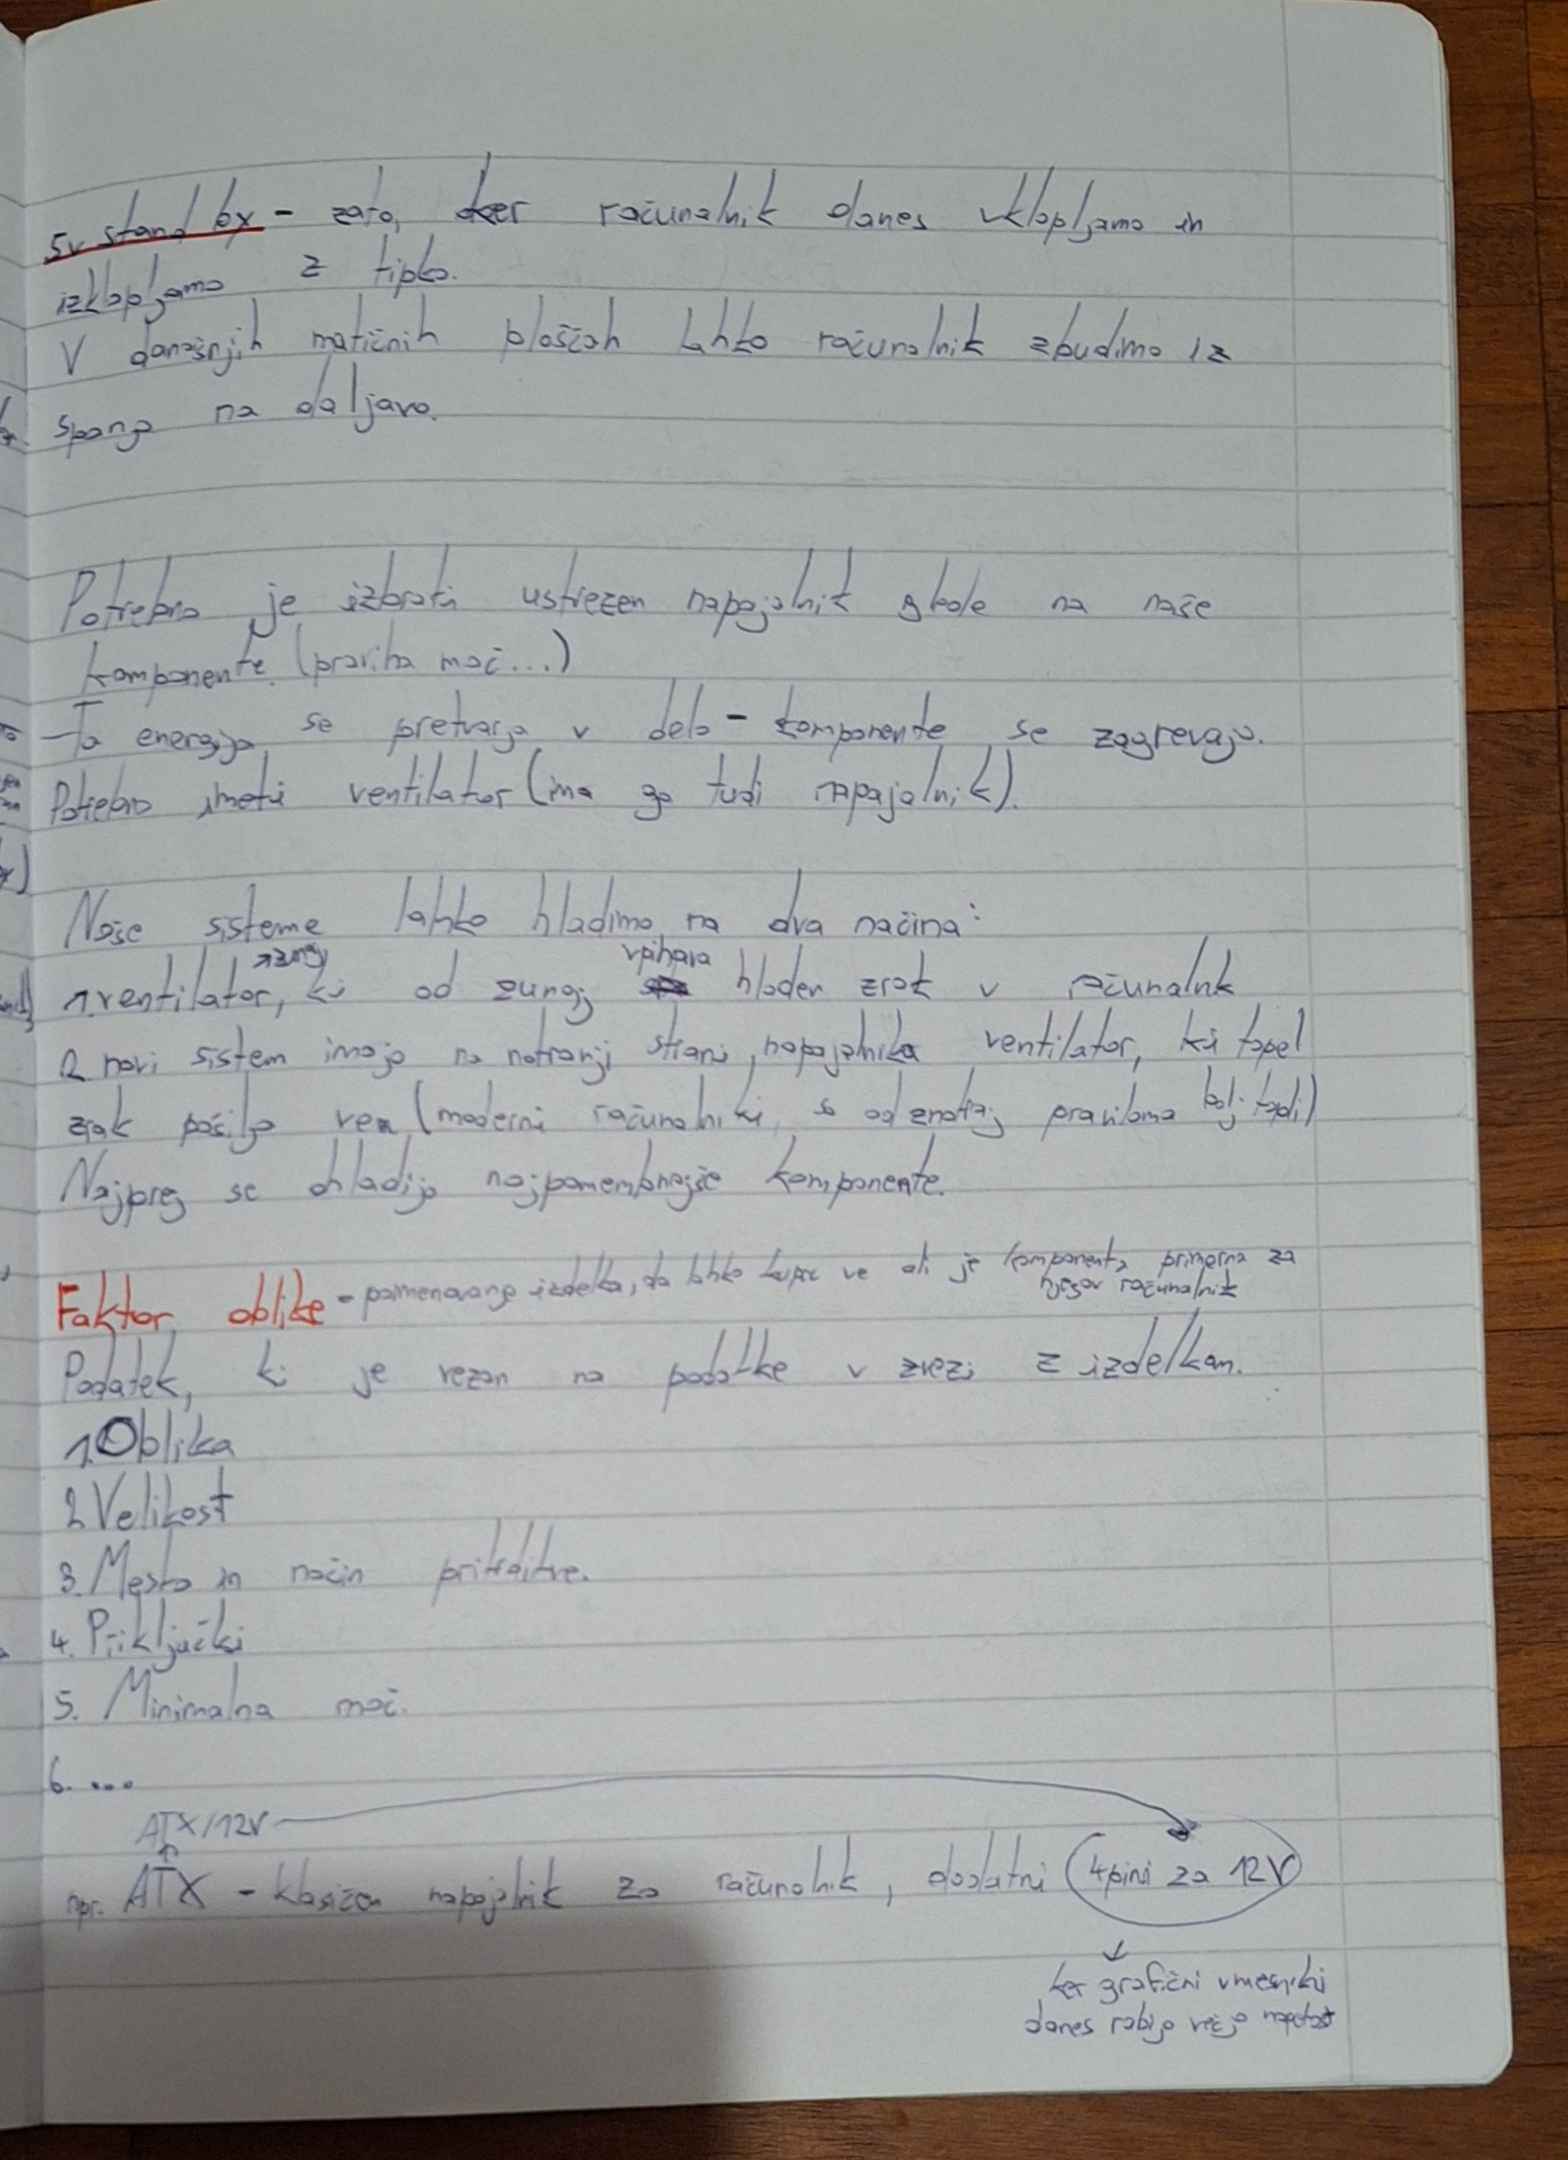 5v stand by - zato, ker računalnik danes vklopljamo in
izklopljamo z tipko.
V današnjih matičnih ploščah lahko računalnik zbudimo iz
spanja na daljavo.
Potrebno je izbrati ustrezen napajalnik glede na naše
komponente (pravilna moč...)
Ta energija se pretvarja v delo - komponente se zagrevajo.
Potrebno imeti ventilator (ima go tudi napajalnik).
Naše sisteme lahko hladimo na dva načina:
zunaj vpihava
1. ventilator, ki od zunaj hladen zrak v računalnk
2 novi sistem imajo na notranji strani napajalnika ventilator, ki topel
zrak pošilja ven (moderni računalniki so od znotraj praviloma bolj topli)
Najprej se ohladijo najpomembnejše komponente.
Faktor oblike - poimenovanje izdelka, da lahko kupec ve ali je komponenta primerna za
njegov računalnik
Podatek, ki je vezan na podatke v zvezi z izdelkom.
1. Oblika
2. Velikost
3. Mesto in način pritrditve.
4. Priključki
5. Minimalna moč.
6. ...
ATX/12V
npr. ATX - klasičen napajalnik za računalnik, dodatni 4pini za 12V
ker grafični vmesniki
danes rabijo večjo napetost